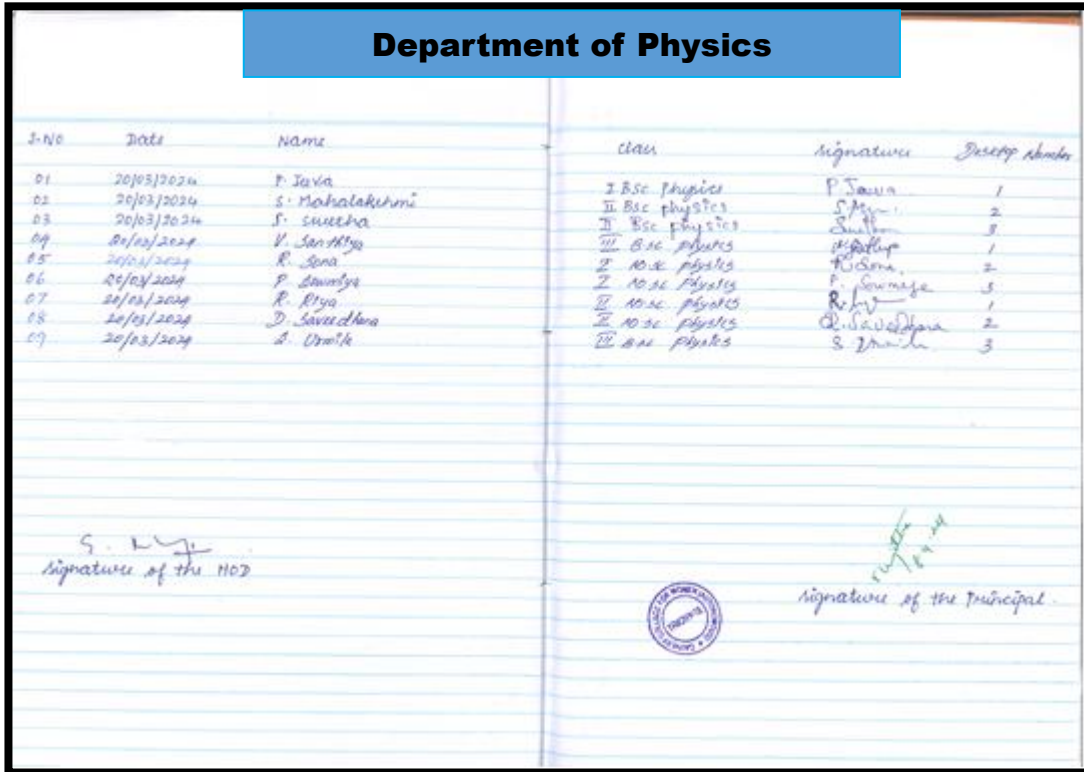 Department of Physics
S.NO Date Name class signature Desktop Number
01 20/03/2024 P. Java I BSc Physics P 1
02 20/03/2024 S. Mahalakshmi II BSc physics 2
03 20/03/2024 S. Swetha II BSc physics 3
04 20/03/2024 V. Santhiya III B.sc physics 1
05 20/03/2024 R. Sona I M.sc physics R. Sona 2
06 20/03/2024 P Sowmiya I M.sc Physics P. Sowmiya 3
07 20/03/2024 R. Riya II M.sc physics 1
08 20/03/2024 D. Saveedhra II M.sc physics 2
09 20/03/2024 III B.sc physics 3
signature of the HOD
signature of the Principal
COLLEGE FOR WOMEN (AUTONOMOUS)